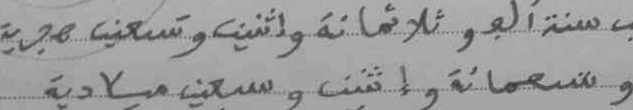 ب سنة ألف و ثلاثمائة واثنين وتسعين هجرية
و تسعمائة و إثنين و سبعين ميلادية